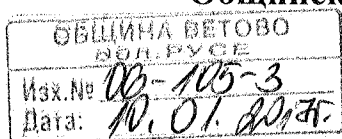 ОБЩИНА ВЕТОВО
ОБЛ. РУСЕ
Изх.№ 06-105-3
Дата: 10.01.2017г.